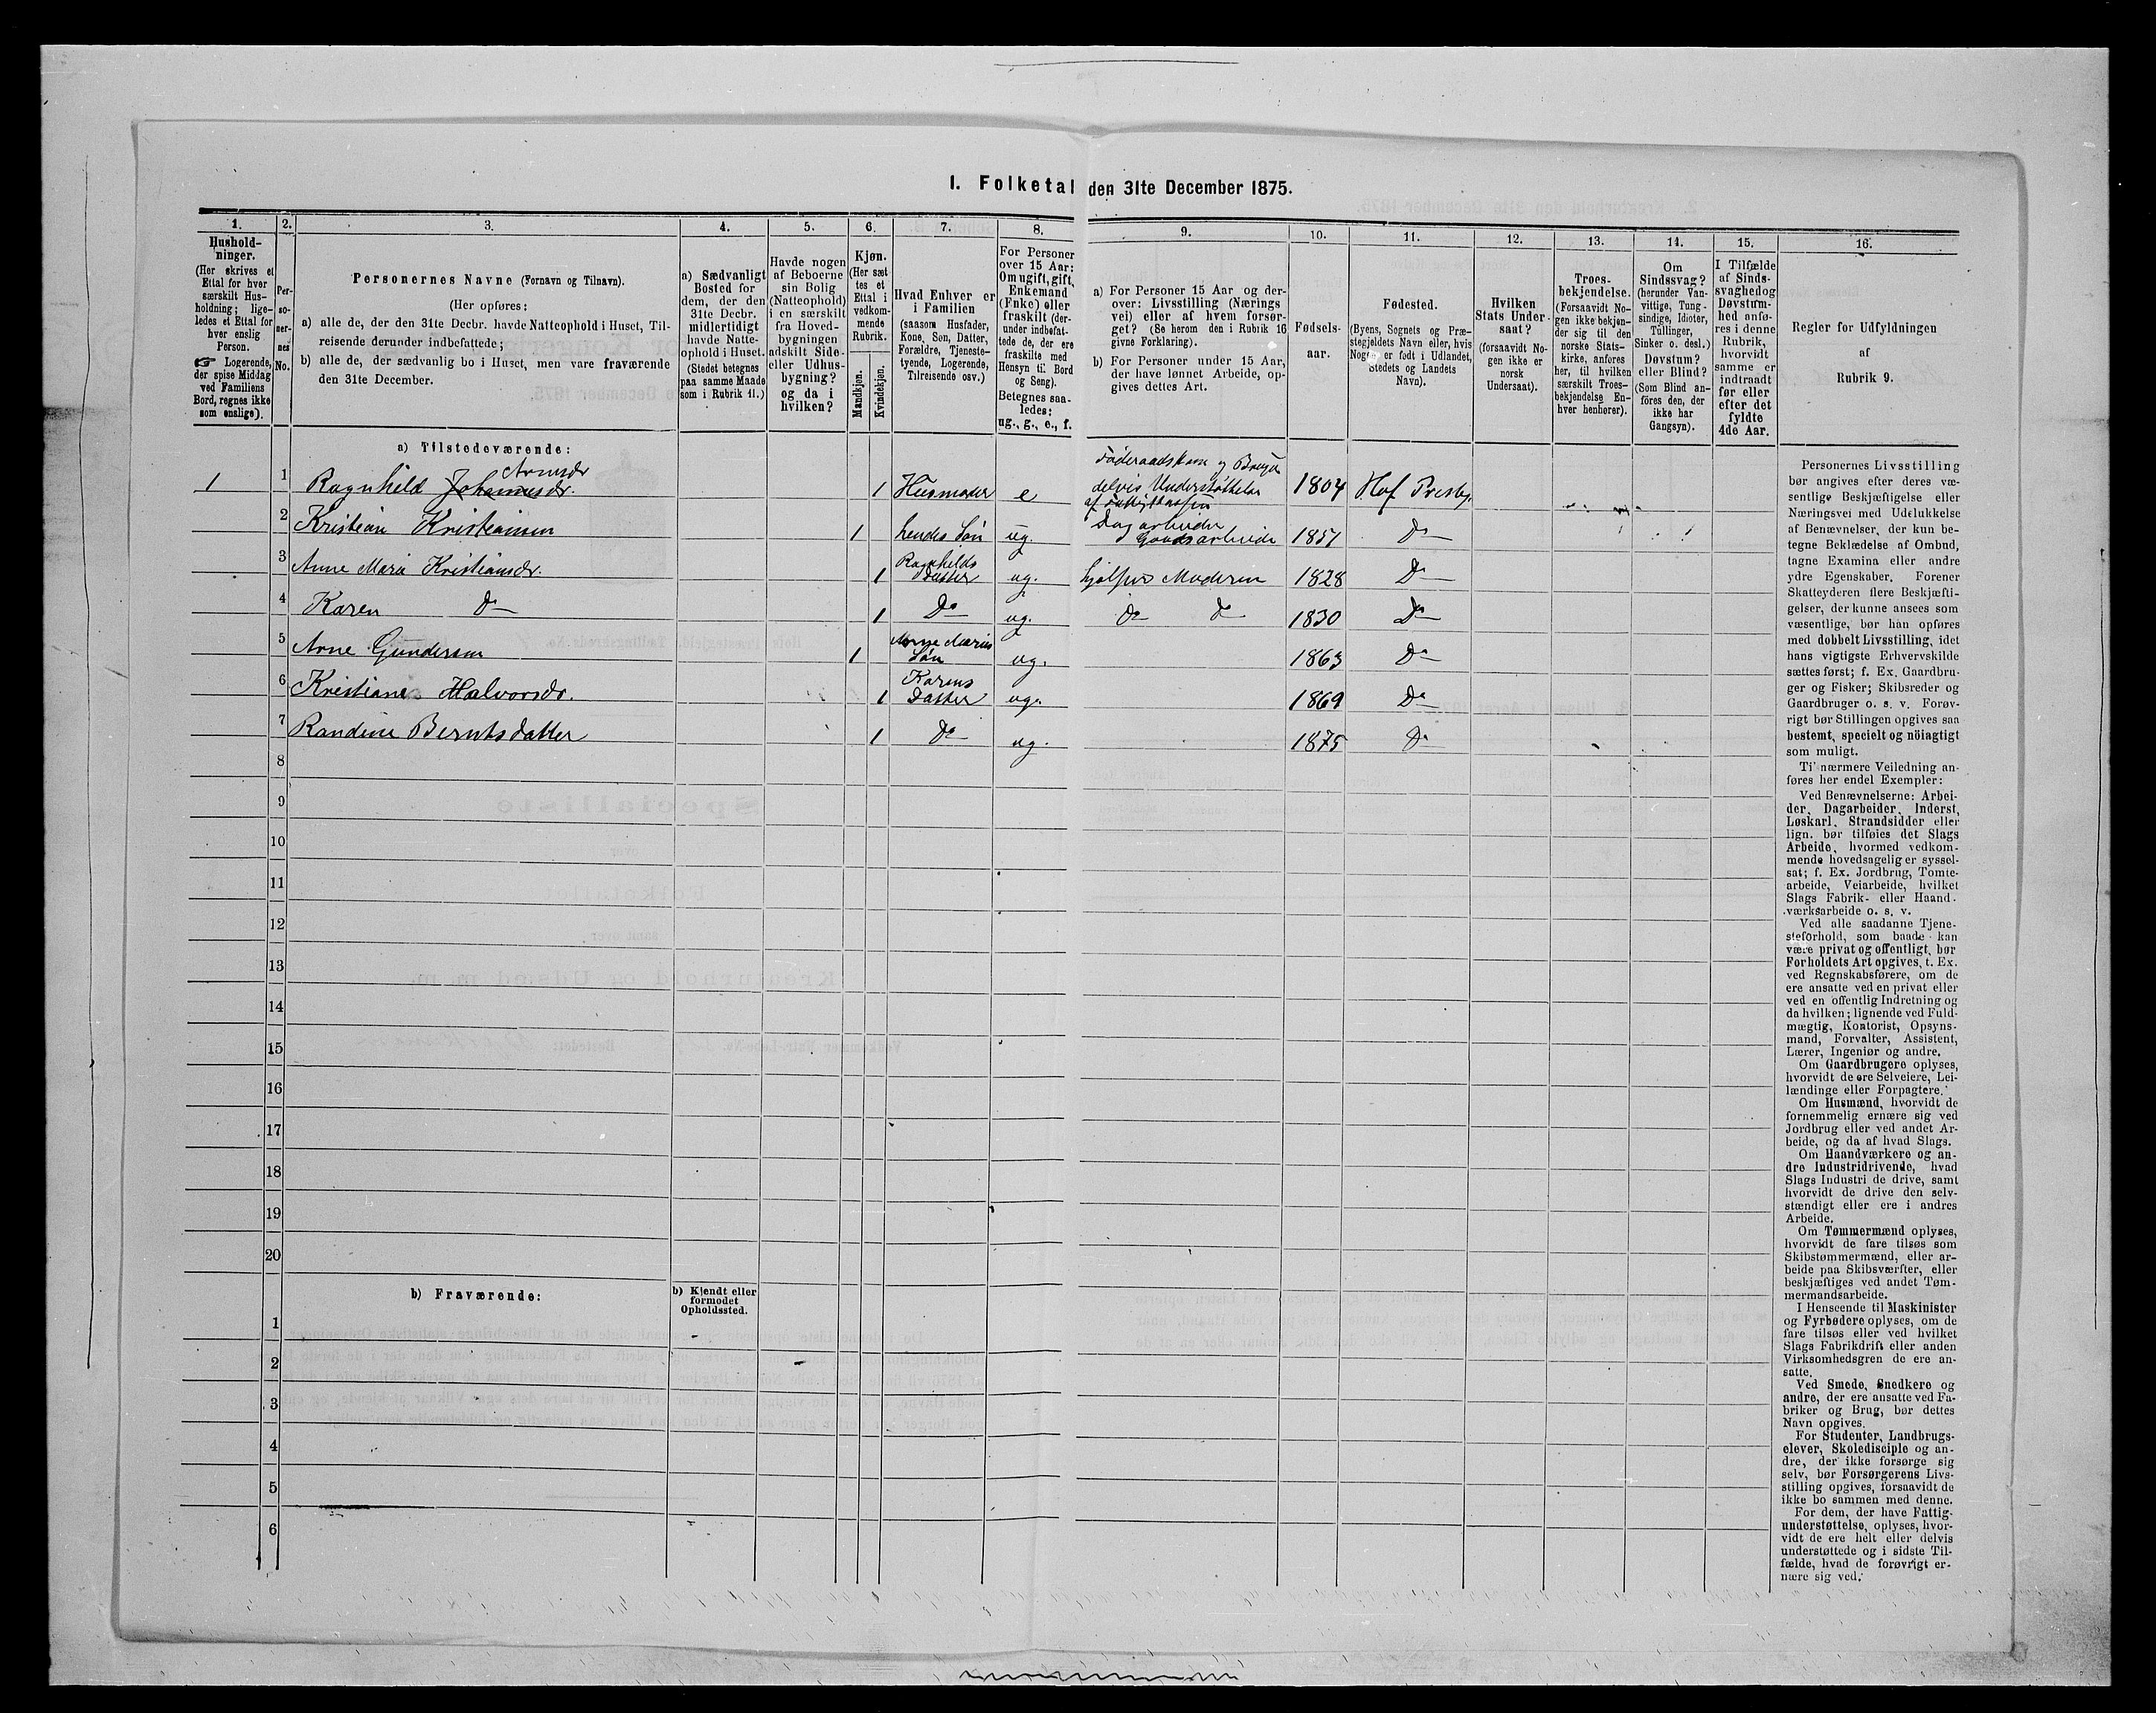 I. Folketal den 31te December 1875.
1.
Hushold-
ninger.
(Her skrives et
Ettal for hver
særskilt Hus-
holdning; lige-
ledes et Ettal for
hver enslig
Person.
☞ Logerende,
der spise Middag
ved Familiens
Bord, regnes ikke
som enslige).
2.
Per-
so-
ner-
nes
No.
3.
Personernes Navne (Fornavn og Tilnavn).
(Her opføres:
a) alle de, der den 31te Decbr. havde Natteophold i Huset, Til-
reisende derunder indbefattede;
b) alle de, der sædvanlig bo i Huset, men vare fraværende
den 31te December.
4.
a) Sædvanligt
Bosted for
dem, der den
31te Decbr.
midlertidigt
havde Natte-
ophold i Huset.
(Stedet betegnes
paa samme Maade
som i Rubrik 11.)
5.
Havde nogen
af Beboerne
sin Bolig
(Natteophold)
i en særskilt
fra Hoved-
bygningen
adskilt Side-
eller Udhus-
bygning?
og da i
hvilken?
6.
Kjøn.
(Her sæt
tes et
Ettal i
vedkom-
mende
Rubrik.
Mandkjøn.
Kvindekjøn.
7.
Hvad Enhver er
i Familien
(saasom Husfader,
Kone, Søn, Datter,
Forældre, Tjeneste-
tyende, Logerende,
Tilreisende osv.)
8.
For Personer
over 15 Aar:
Om ugift, gift,
Enkemand
(Enke) eller
fraskilt (der-
under indbefat-
tede de, der ere
fraskilte med
Hensyn til Bord
og Seng).
Betegnes saa-
ledes:
ug., g., e., f.
9.
a) For Personer 15 Aar og der-
over: Livsstilling (Nærings
vei) eller af hvem forsør-
get? (Se herom den i Rubrik 16
givne Forklaring).
b) For Personer under 15 Aar,
der have lønnet Arbeide, op-
gives dettes Art.
10.
Fødsels-
aar.
11.
Fødested.
(Byens, Sognets og Præ-
stegjeldets Navn eller, hvis
Nogen er født i Udlandet,
Stedets og Landets
Navn).
12.
Hvilken
Stats Under-
saat?
(forsaavidt No-
gen ikke er
norsk
Undersaat).
13.
Troes-
bekjendelse.
(Forsaavidt No-
gen ikke bekjen-
der sig til den
norske Stats-
kirke, anføres
her, til hvilken
særskilt Troes-
bekjendelse En-
hver henhører).
14.
Om
Sindssvag?
(herunder Van-
vittige, Tung-
sindige, Idioter,
Tullinger,
Sinker o. desl.)
Døvstum?
eller Blind?
(Som Blind an-
føres den, der
ikke har
Gangsyn).
15.
I Tilfælde
af Sinds-
svaghed og
Døvstum-
hed anfø-
res i denne
Rubrik,
hvorvidt
samme er
indtraadt
før eller
efter det
fyldte
4de Aar.
16.
Regler for Udfyldningen
af
Rubrik 9.
a) Tilstedeværende:
1 1 Ragnhild Johannesdr. Arnesdr 1 Husmoder e Føderaadskone og delvis Understøttelse af Fattigkassen 1804 Hof Presbg.
2 Kristian Kristiansen 1 hendes Søn ug. Dagarbeider Gaardsarbeide 1851 Do
3 Anne Mari Kristiansdr. 1 Ragnhilds Datter ug. hjælper Moderen 1828 Do
4 Karen Do 1 Do ug. Do Do 1830 Do
5 Arne Gundersen 1 Anne Maries Søn ug. 1863 Do
6 Kristiane Halvorsdr. 1 Karens Datter ug. 1869 Do
7 Randine Berntsdatter 1 Do ug. 1875 Do
8
9
10
11
12
13
14
15
16
17
18
19
20
b) Fraværende:
b) Kjendt eller
formodet
Opholdssted.
1
2
3
4
5
6
Personernes Livsstilling
bør angives efter deres væ-
sentlige Beskjæftigelse eller
Næringsvei med Udelukkelse
af Benævnelser, der kun be-
tegne Beklædelse af Ombud,
tagne Examina eller andre
ydre Egenskaber. Forener
Skatteyderen flere Beskjæfti-
gelser, der kunne ansees som
væsentlige, bør han opføres
med dobbelt Livsstilling, idet
hans vigtigste Erhvervskilde
sættes først; f. Ex. Gaardbru-
ger og Fisker; Skibsreder og
Gaardbruger o. s. v. Forøv-
rigt bør Stillingen opgives saa
bestemt, specielt og nöiagtigt
som muligt.
Til nærmere Veiledning an-
føres her endel Exempler:
Ved Benævnelserne: Arbei-
der, Dagarbeider, Inderst,
Løskarl, Strandsidder eller
lign. bør tilføies det Slags
Arbeide, hvormed vedkom-
mende hovedsagelig er syssel-
sat; f. Ex. Jordbrug, Tomte-
arbeide, Veiarbeide, hvilket
Slags Fabrik- eller Haand-
værksarbeide o. s. v.
Ved alle saadanne Tjene-
steforhold, som baade kan
være privat og offentligt, bør
Forholdets Art opgives, t. Ex.
ved Regnskabsførere, om de
ere ansatte ved en privat eller
ved en offentlig Indretning og
da hvilken; lignende ved Fuld-
mægtig, Kontorist, Opsyns-
mand, Forvalter, Assistent,
Lærer, Ingeniør og andre.
Om Gaardbrugere oplyses,
hvorvidt de ere Selveiere, Lei-
lændinge eller Forpagtere.
Om Husmænd, hvorvidt de
fornemmelig ernære sig ved
Jordbrug eller ved andet Ar-
beide, og da af hvad Slags.
Om Haandværkere og an-
dre Industridrivende, hvad
Slags Industri de drive, samt
hvorvidt de drive den selv-
stændigt eller ere i andres
Arbeide.
Om Tømmermænd oplyses,
hvorvidt de fare tilsøs som
Skibstømmermænd, eller ar-
beide paa Skibsværfter, eller
beskjæftiges ved andet Tøm-
mermandsarbeide.
I Henseende til Maskinister
og Fyrbødere oplyses, om de
fare tilsøs eller ved hvilket
Slags Fabrikdrift eller anden
Virksomhedsgren de ere an-
satte.
Ved Smede, Snedkere og
andre, der ere ansatte ved Fa-
briker og Brug, bør dettes
Navn opgives.
For Studenter, Landbrugs-
elever, Skoledisciple og an-
dre, der ikke forsørge sig
selv, bør Forsørgerens Livs-
stilling opgives, forsaavidt de
ikke bo sammen med denne.
For dem, der have Fattig-
understøttelse, oplyses, hvor-
vidt de ere helt eller delvis
understøttede og i sidste Til-
fælde, hvad de forøvrigt er-
nære sig ved.